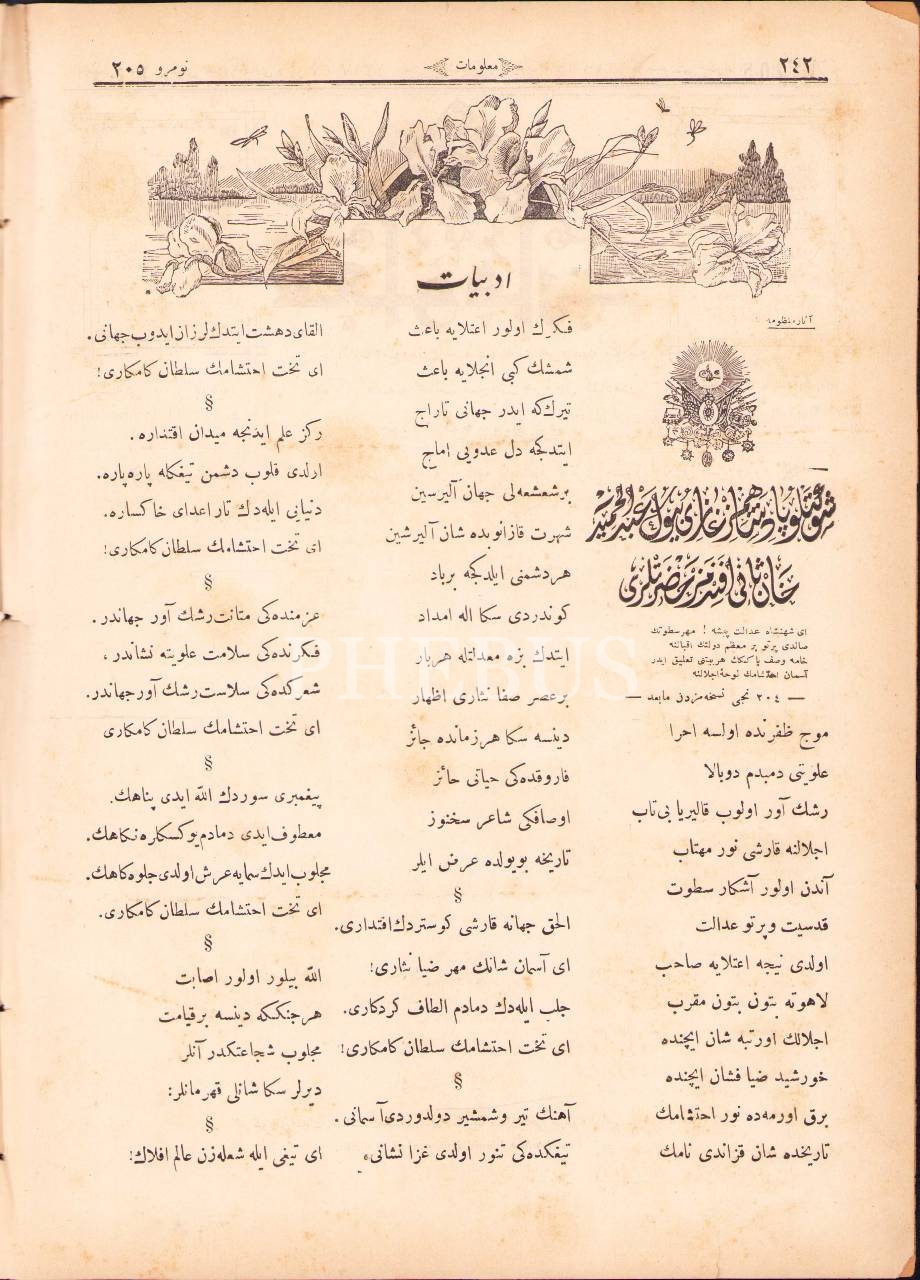 ٢٤٢
معلومات
نومرو ٢٠٥
ادبیات
آثار منظومه
شوكتلو پادشاهمز غازی بیوك عبدالحمید
خان ثانی افندمز حضرتلری
ای شهنشاه عدالت پیشه ! مهر سطوتك
صالدی پرتو بر معظم دولتك اقبالنه
خامه وصف پاكنك هر بیتنی تعلیق ایدر
آسمان احتشامك لوحهٔ اجلالنه
— ٢٠٤ نجی نسخه مزدن مابعد —
موج ظفرنده اولسه احرا
علویتی دمبدم دوبالا
رشك آور اولوب قالیر یا بی تاب
اجلالنه قارشی نور مهتاب
آندن اولور آشكار سطوت
قدسیت و پرتو عدالت
اولدی نیجه اعتلایه صاحب
لاهوته بتون بتون مقرب
اجلالك اورتبه شان ایچنده
خورشید ضیا فشان ایچنده
برق اورمه ده نور احتشامك
تاریخده شان قزاندی نامك
فكرك اولور اعتلایه باعث
شمشك كبی انجلایه باعث
تیرك كه ایدر جهانی تاراج
ایتدكجه دل عدویی اماج
بر شعشعه لی جهان آلیرسین
شهرت قازانوبده شان آلیرشین
هر دشمنی ایلدكجه برباد
كوندردی سكا اله امداد
ایتدك بزه معدلتله هر بار
بر عصر صفا نثاری اظهار
دینسه سكا هر زمانده جائز
فاروقده كی حیاتی حائز
اوصافكی شاعر سخنوز
تاریخه بویولده عرض ایلر
§
الحق جهانه قارشی كوستردك اقتداری.
ای آسمان شانك مهر ضیا نثاری!
جلب ایله دك دمادم الطاف كردكاری.
ای تخت احتشامك سلطان كامكاری!
§
آهنك تیر و شمشیر دولدوردی آسمانی.
تیغكده كی تنور اولدی غزا نشانی،
القای دهشت ایتدك لرزان ایدوب جهانی.
ای تخت احتشامك سلطان كامكاری!
§
ركز علم ایدنجه میدان اقتداره.
ارلدی قلوب دشمن تیغكله پاره پاره.
دنیایی ایله دك تار اعدای خاكساره.
ای تخت احتشامك سلطان كامكاری!
§
عزمنده كی متانت رشك آور جهاندر.
فكرنده كی سلامت علویته نشاندر،
شعركده كی سلاست رشك آور جهاندر.
ای تخت احتشامك سلطان كامكاری
§
پیغمبری سوردك الله ایدی پناهك.
معطوف ایدی دمادم یوكسكلره نكاهك.
مجلوب ایدك سمایه عرش اولدی جلوه كاهك.
ای تخت احتشامك سلطان كامكاری.
§
الله بیلور اولور اصابت
هر جنككه دینسه بر قیامت
مجلوب شجاعتكدر آنلر
دیرلر سكا شانلی قهرمانلر:
§
ای تیغی ایله شعله زن عالم افلاك!
PHEBUS